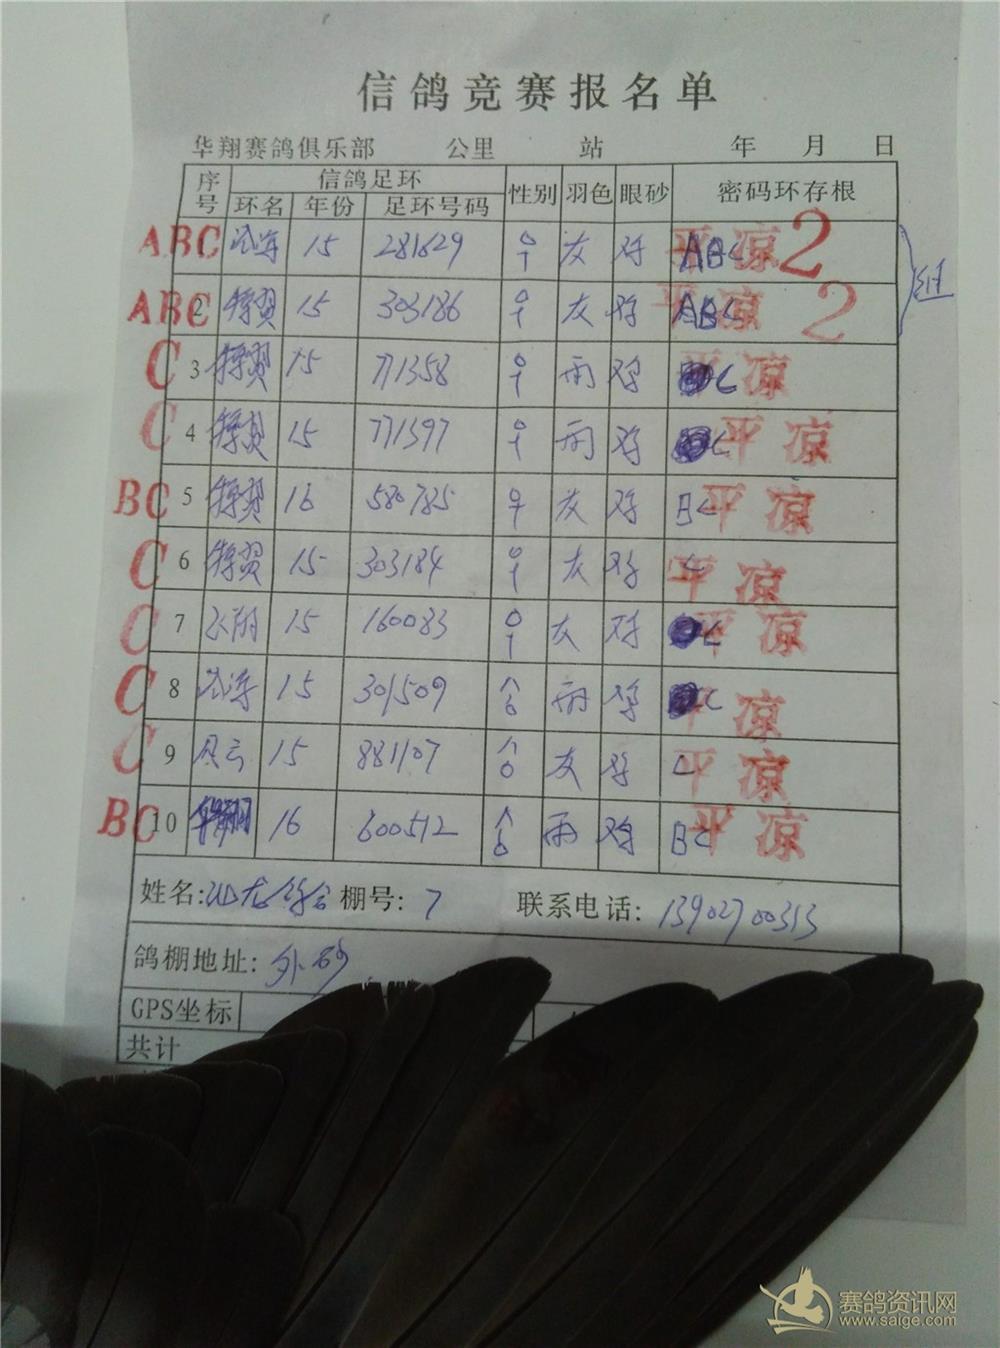 信鸽竞赛报名单
华翔赛鸽俱乐部 公里 站 年 月 日
序号 信鸽足环 性别 羽色 眼砂 密码环存根
环名 年份 足环号码
ABC 15 281629 ♀ 灰 ABC 平凉 2
ABC 2 15 303186 ♀ 灰 ABC 平凉 2 组
C 3 15 771358 ♀ 雨 C 平凉
C 4 15 771397 ♀ 雨 C 平凉
BC 5 16 580785 ♀ 灰 BC 平凉
C 6 15 303184 ♀ 灰 C 平凉
C 7 15 160083 ♀ 灰 C 平凉
C 8 15 301509 雨 C 平凉
C 9 风云 15 881107 灰 C 平凉
BC 10 16 600512 雨 BC 平凉
姓名: 棚号: 7 联系电话: 13902700313
鸽棚地址: 外砂
GPS坐标
共计
赛鸽资讯网
www.saige.com